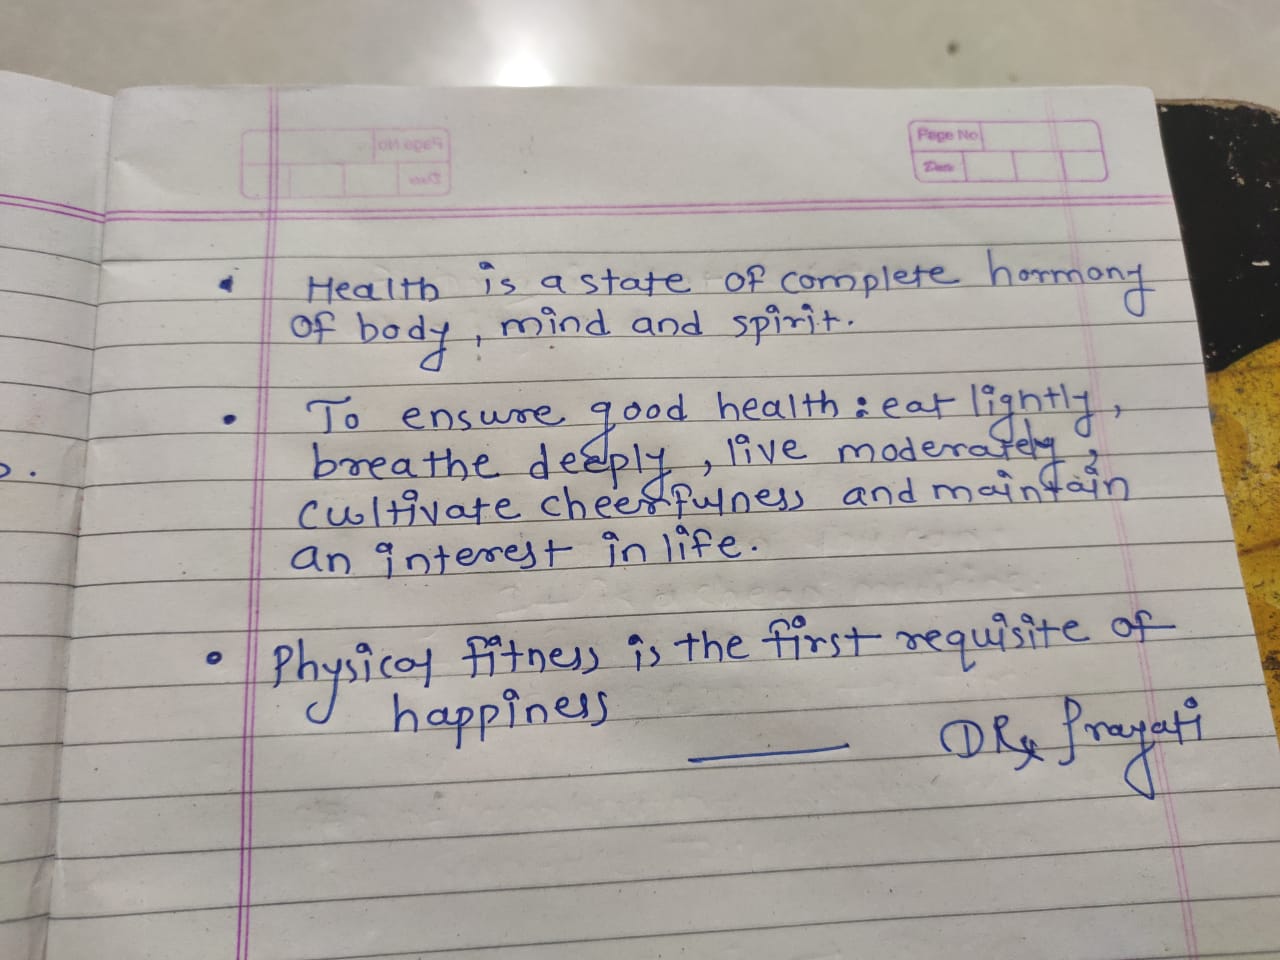 Page No
Date
• Health is a state of complete hormony
of body, mind and spirit.
• To ensure good health: eat lightly,
breathe deeply, live moderately,
cultivate cheerfulness and maintain
an interest in life.
• Physical fitness is the first requisite of
happiness
DRx Prayati